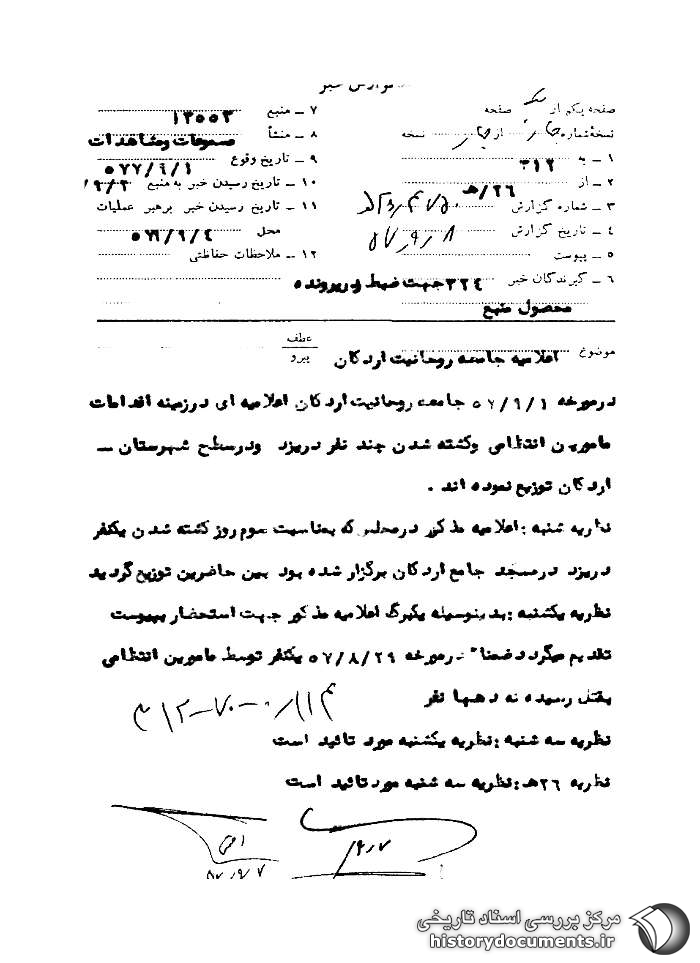 گزارش خبر
صفحه یکم از یک صفحه
نسخهٔ شماره چهار از چهار نسخه
۱ ـ به ۳۱۲
۲ ـ از ۲۶/هـ
۳ ـ شماره گزارش
۴ ـ تاریخ گزارش ۵۷/۹/۸
۵ ـ پیوست
۶ ـ گیرندگان خبر ۳۲۴ جهت ضبط در پرونده
محصول منبع
۷ ـ منبع ۱۳۵۵۳
۸ ـ منشأ مسموعات و مشاهدات
۹ ـ تاریخ وقوع ۵۷۷/۹/۱
۱۰ ـ تاریخ رسیدن خبر به منبع
۱۱ ـ تاریخ رسیدن خبر برهبر عملیات
محل ۵۷۹/۹/۴
۱۲ ـ ملاحظات حفاظتی
موضوع اعلامیه جامعه روحانیت اردکان
عطف
پیرو
درمورخه ۵۷/۹/۱ جامعه روحانیت اردکان اعلامیه ای درزمینه اقدامات
مامورین انتظامی وکشته شدن چند نفر دریزد ودرسطح شهرستان ــ
اردکان توزیع نموده اند .
نظریه شنبه : اعلامیه مذکور درمجلس که بمناسبت سوم روز کشته شدن یکنفر
دریزد درمسجد جامع اردکان برگزار شده بود بین حاضرین توزیع گردید
نظریه یکشنبه : بدینوسیله یکبرگ اعلامیه مذکور جهت استحضار بپیوست
تقدیم میگردد ضمنا" درمورخه ۵۷/۸/۲۹ یکنفر توسط مامورین انتظامی
بقتل رسیده نه دهها نفر
نظریه سه شنبه : نظریه یکشنبه مورد تائید است
نظریه ۲۶هـ : نظریه سه شنبه مورد تائید است
۹/۷
۵۷/۹/۷
مرکز بررسی اسناد تاریخی
historydocuments.ir